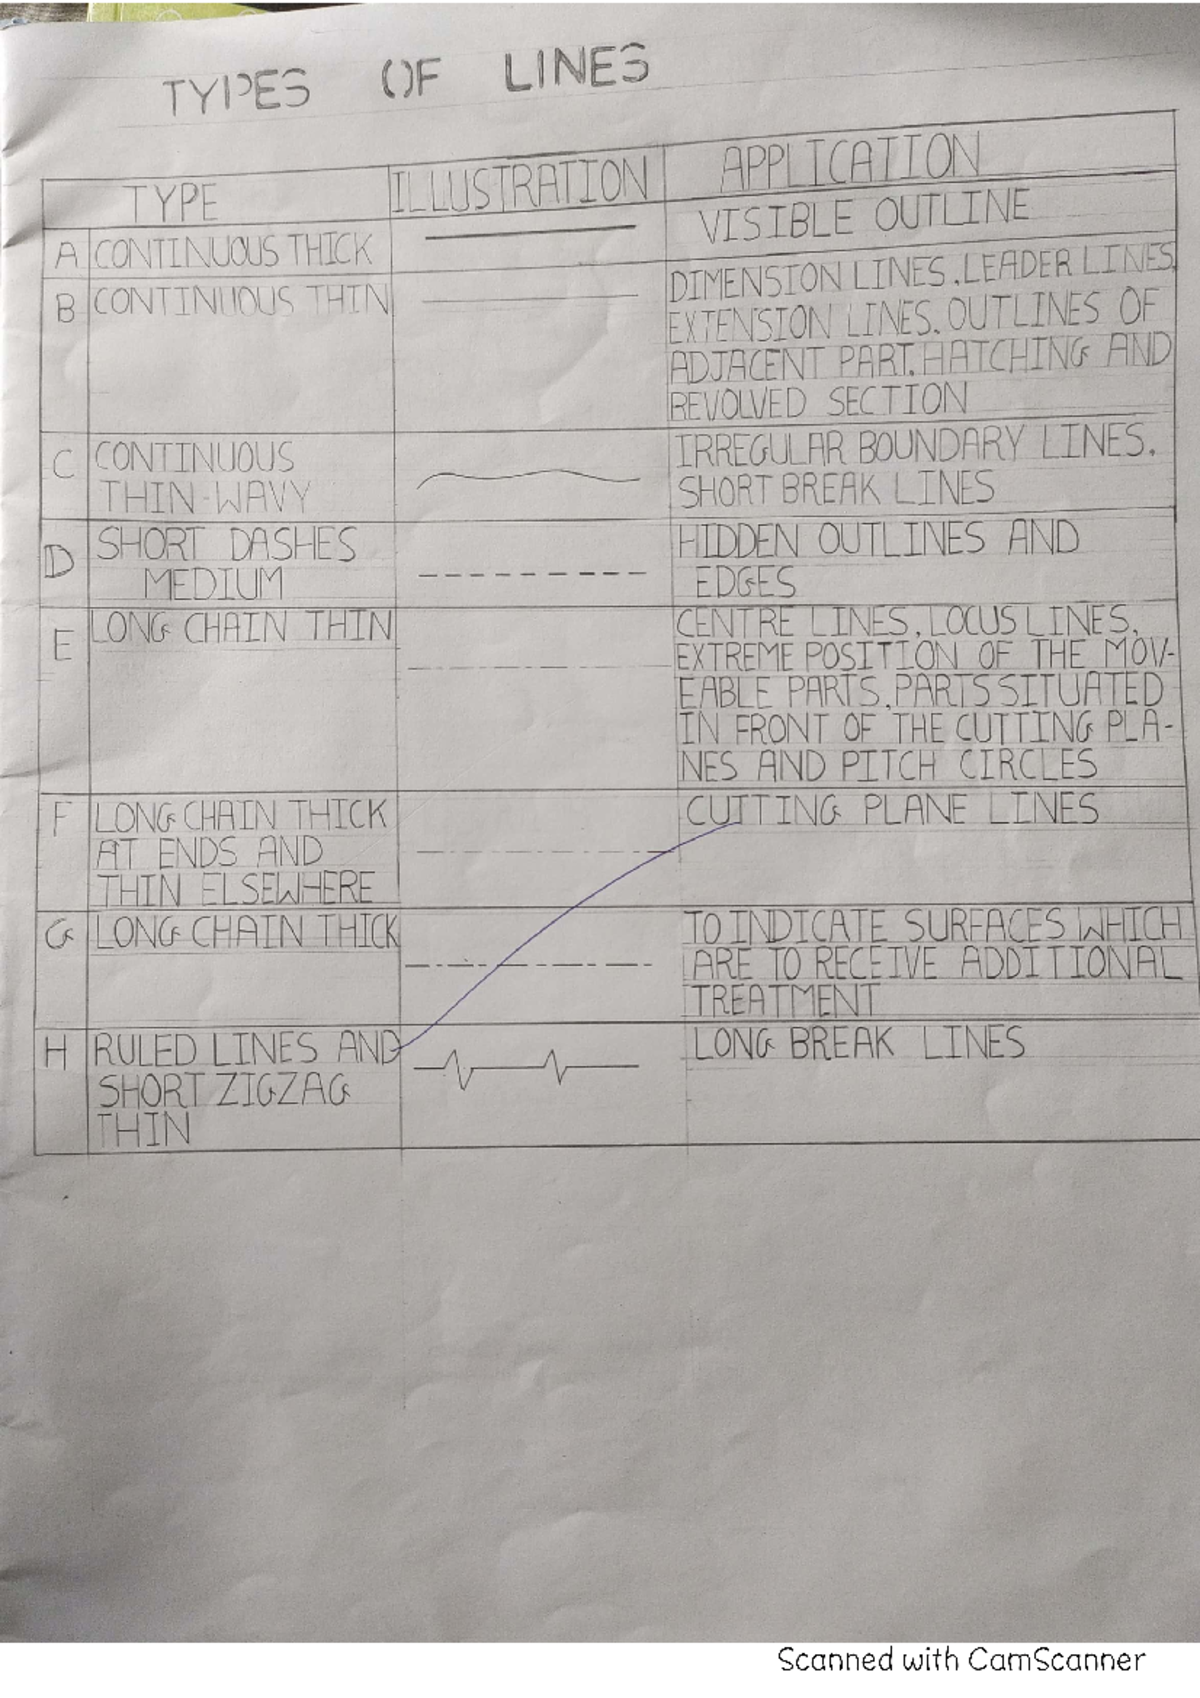 TYPES OF LINES
TYPE ILLUSTRATION APPLICATION
A CONTINUOUS THICK VISIBLE OUTLINE
B CONTINUOUS THIN DIMENSION LINES, LEADER LINES,
EXTENSION LINES, OUTLINES OF
ADJACENT PART, HATCHING AND
REVOLVED SECTION
C CONTINUOUS IRREGULAR BOUNDARY LINES,
THIN-WAVY SHORT BREAK LINES
D SHORT DASHES HIDDEN OUTLINES AND
MEDIUM EDGES
E LONG CHAIN THIN CENTRE LINES, LOCUS LINES,
EXTREME POSITION OF THE MOV-
EABLE PARTS, PARTS SITUATED
IN FRONT OF THE CUTTING PLA-
NES AND PITCH CIRCLES
F LONG CHAIN THICK CUTTING PLANE LINES
AT ENDS AND
THIN ELSEWHERE
G LONG CHAIN THICK TO INDICATE SURFACES WHICH
ARE TO RECEIVE ADDITIONAL
TREATMENT
H RULED LINES AND LONG BREAK LINES
SHORT ZIGZAG
THIN
Scanned with CamScanner